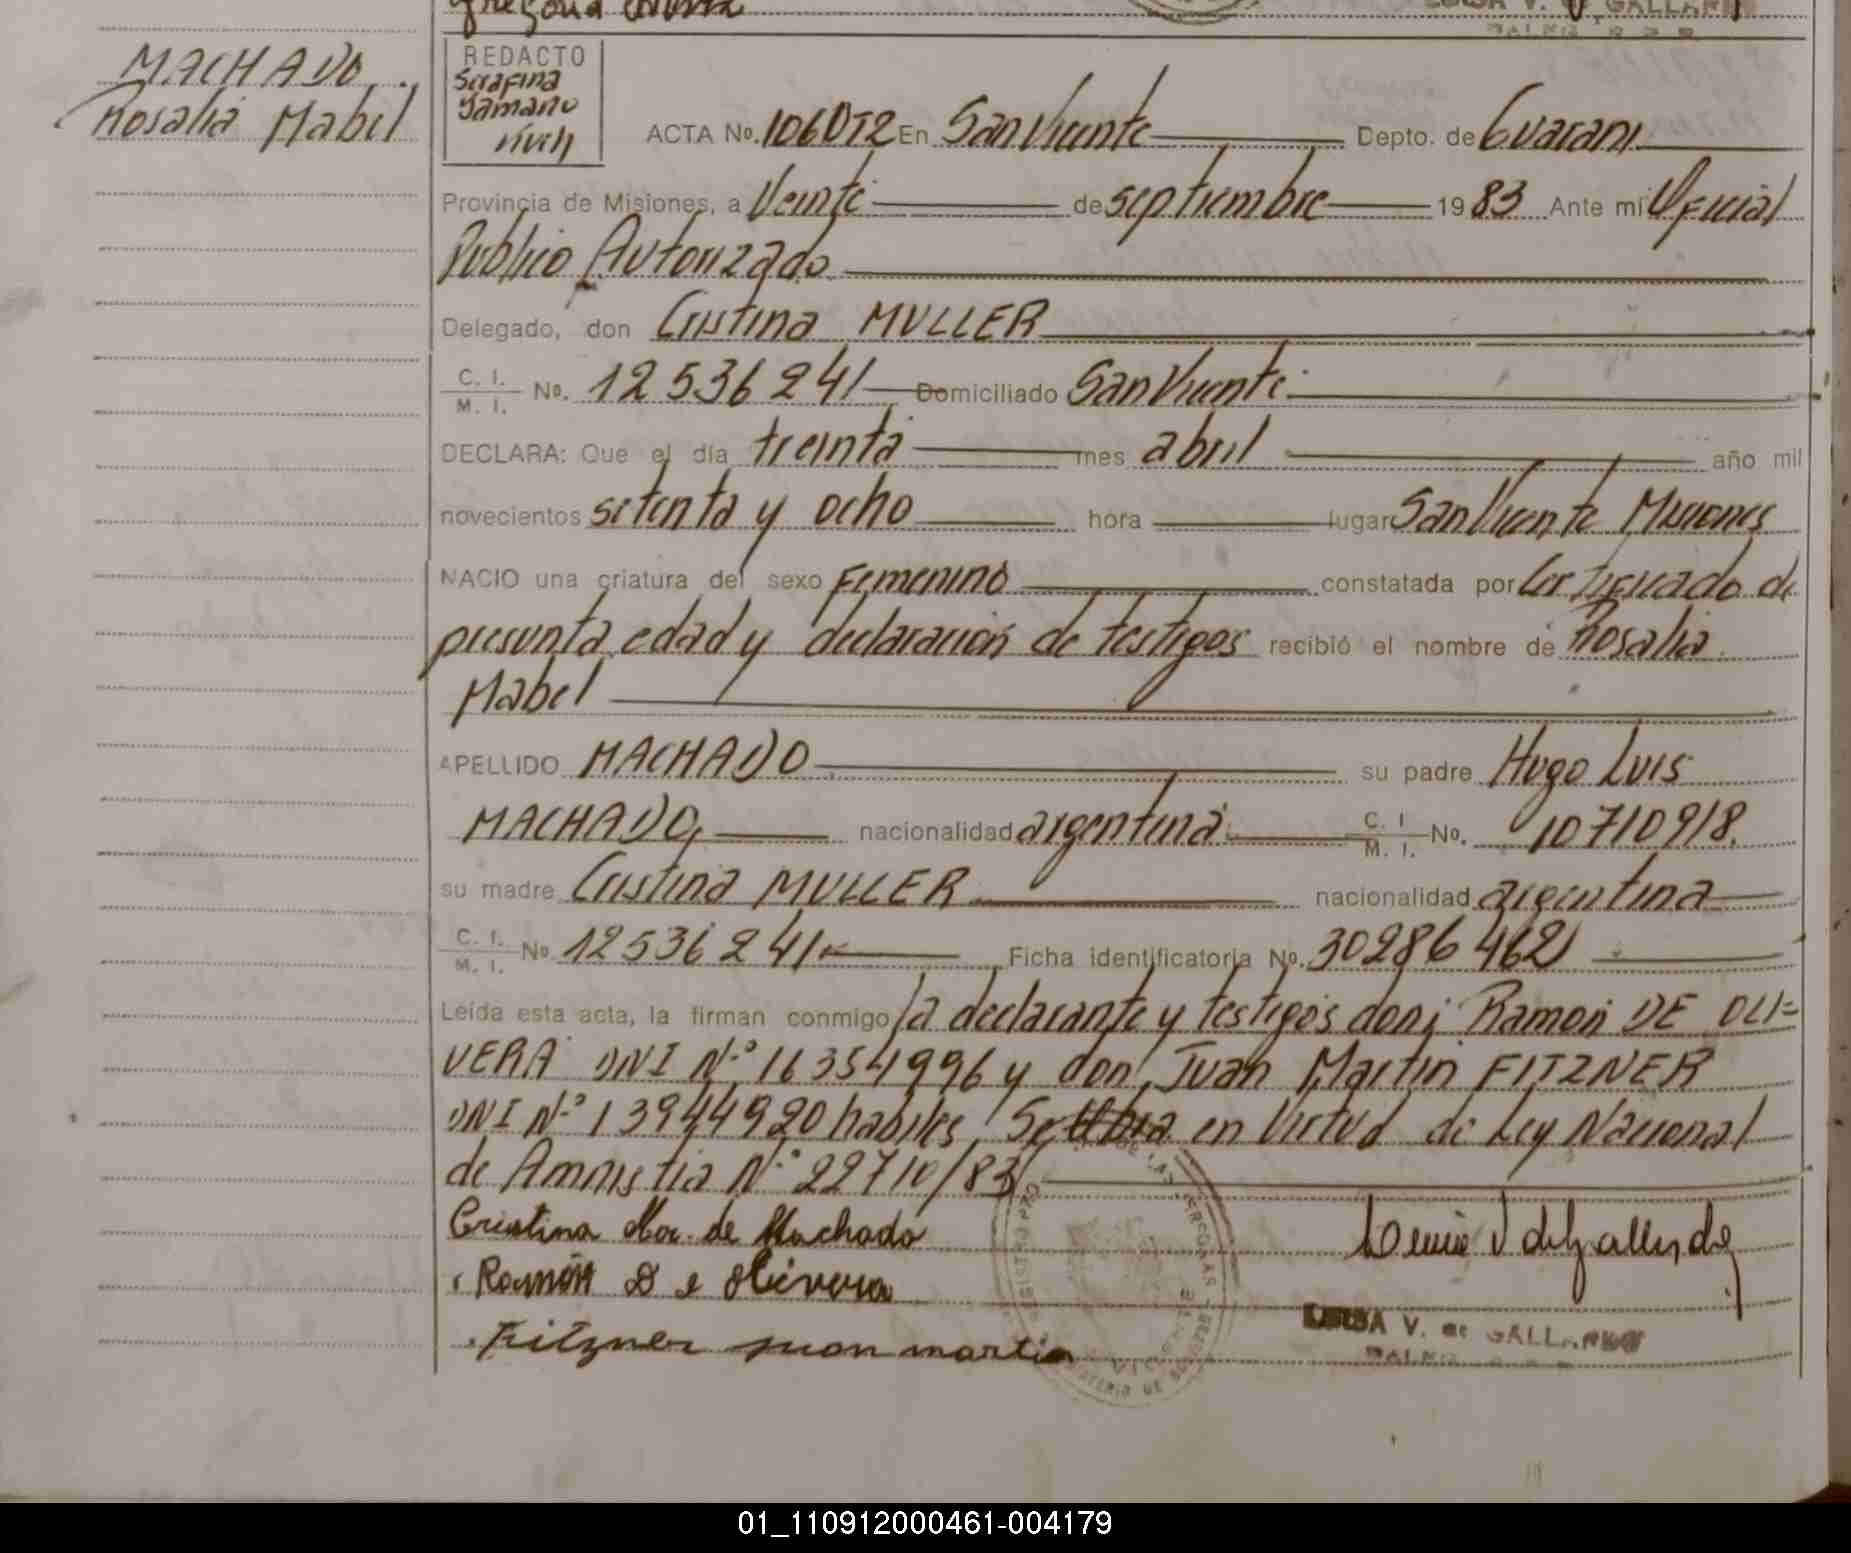 LUISA V. de GALLARDO
MACHADO
Rosalia Mabel
REDACTO
Serafina
ACTA No. 106DT2 En San Vicente Depto. de Guarani
Provincia de Misiones, a Veinte de septiembre 1983 Ante mi Oficial
Publico Autorizado
Delegado, don Cristina MULLER
C. I. / M. I. No. 12536241 Domiciliado San Vicente
DECLARA: Que el día treinta mes abril año mil
novecientos setenta y ocho hora lugar San Vicente Misiones
NACIO una criatura del sexo Femenino constatada por Certificado de
presunta edad y declaración de testigos recibió el nombre de Rosalia
Mabel
APELLIDO MACHADO su padre Hugo Luis
MACHADO, nacionalidad argentina C. I / M. I. No. 10710918.
su madre Cristina MULLER nacionalidad argentina
C. I. / M. I. No. 12536241 Ficha identificatoria No. 30286462
Leída esta acta, la firman conmigo la declarante y testigos don; Ramon DE OLI=
VERA DNI N.º 16354996 y don, Juan Martin FITZNER
DNI N.º 13944920 habiles, Se labra en Virtud de Ley Nacional
de Amnistia N.º 22710/83
Cristina de Machado
Ramón De Olivera
Fitzner juan martin
LUISA V. de GALLARDO
01_110912000461-004179